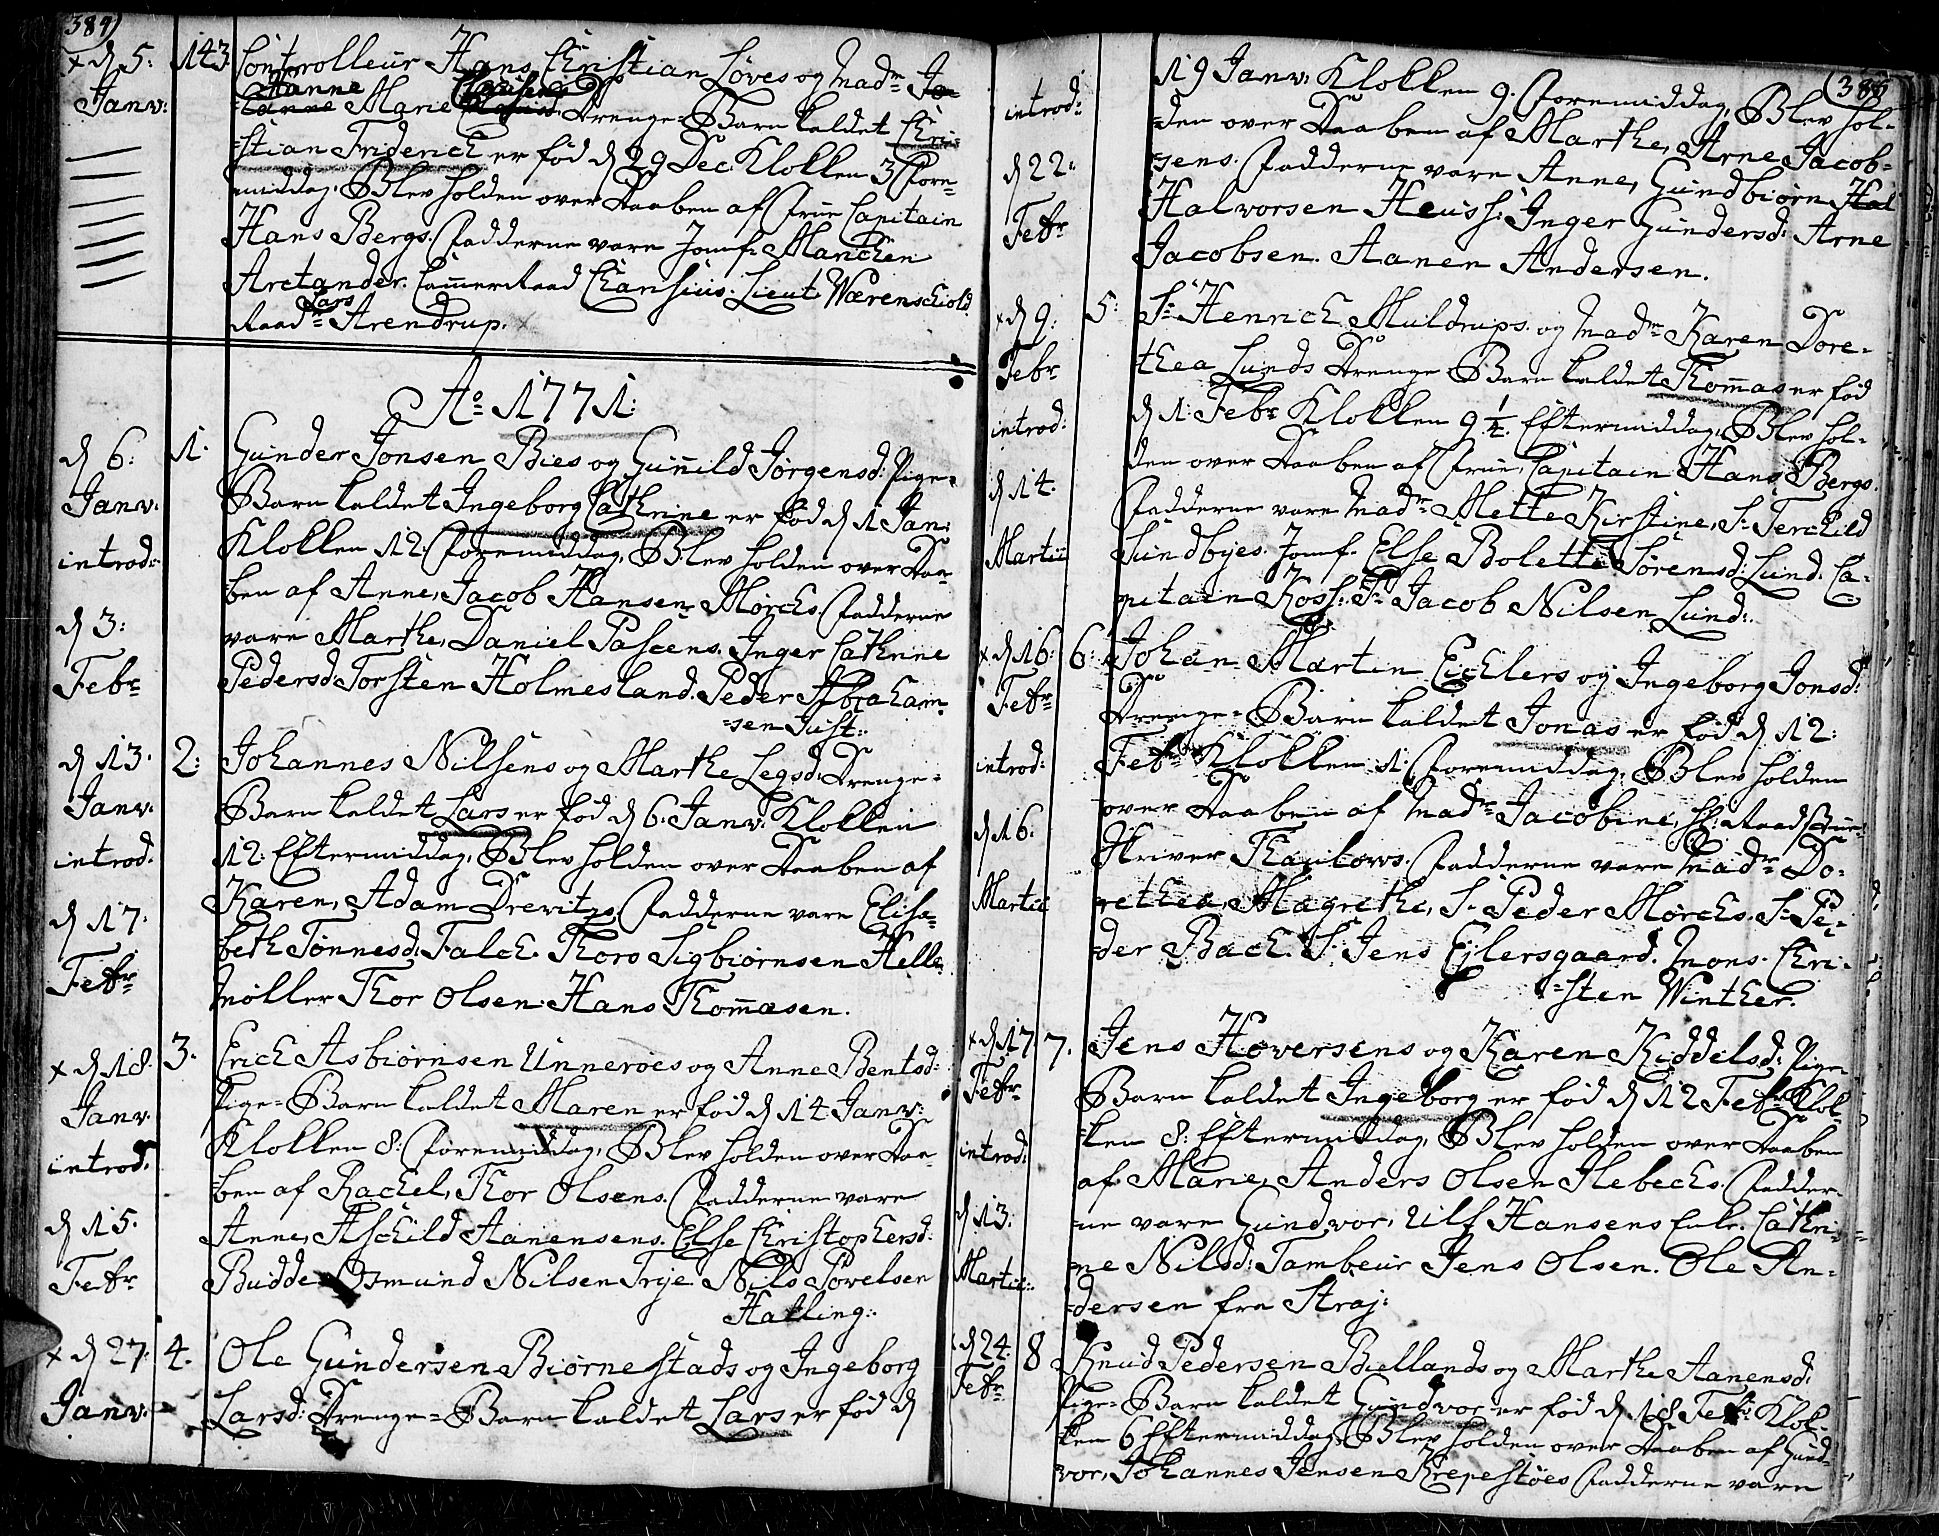 384)
x d 5: 143. Controlleur Hans Christian Loves og Mad:r Jo=
Janv: Hanne Marie Drenge=Barn kaldet Chri=
=stian Friderich er fød d 29 Dec: Klokken 3 For=
middag, Blev holden over Daaben af Frue Capitain
Hans Bergs. Fadderne vare Jomf: Manchen
Arctander. Cam̄erRaad Lieut: Wærenschiold.
Lars
Raad:r Arendrup.
Ao 1771:
d 6: Janv: 1. Gunder Jonsen Bies og Gun̄ild Jørgensd: Pige=
Barn kaldet Ingeborg Cathrine er fød d 1 Jan:
introd: Klokken 12: Formiddag, Blev holden over Daa=
ben af Anne, Jacob Hansen Mørchs. Fadderne
d 3: vare Marthe, Daniel Inger Cathrine
Febr Pedersd: Torsten Holmesland. Peder Abraham=
=sen Just:
d 13. Janv: 2: Johannes Nilsens og Marthe Legsd: Drenge=
Barn kaldet Lars er fød d 6. Janv: Klokken
introd. 12: Eftermiddag, Blev holden over Daaben af
Karen, Adam Drevitzes. Fadderne vare Elisa=
d 17. beth Tønnesd: Falch. Thoro Sigbiørnsen Helle
Febr Møller Thor Olsen: Hans Thom̄asen.
x d 18. Janv: 3. Erich Asbiørnsen Unneroes og Anne Bentsd:
Pige=Barn kaldet Maren er fød d 14 Janv:
introd: Klokken 8: Formiddag, Blev holden over Daa=
ben af Rachel, Thor Olsens. Fadderne vare
d 15. Anne, Aschild Aanensens. Else Christophersd:
Febr Budde. Osmund Nilsen Nils
Halling:
x d 27. Janv: 4. Ole Gundersen Biørnestads og Ingeborg
Larsd: Drenge=Barn kaldet Lars er fød d
385
introd: 19 Janv: Klokken 9. Formiddag, Blev hol=
den over Daaben af Marthe, Arne Jacob=
d 22: sens. Fadderne vare Anne, Gundbiørn Hal
Febr Halvorsen Heiis: Inger Gundersd: Arne
Jacobsen. Aanen Andersen.
x d 9: Febr 5: Sr Henrich Muldrups og Mad:r Karen Dore=
thea Lunds Drenge Barn kaldet Thom̄as er fød
introd: d 1: Febr Klokken 9 1/4. Eftermiddag, Blev hol=
den over Daaben af Frue, Capitain Hans Bergs.
d 14. Fadderne vare Mad:r Mette Kirstine, Sr Terchild
Martii Sundbyes. Jomf: Else Bolette Sørensd: Lund. Ca=
pitain Koss: Sr Jacob Nilsen Lund:
x d 16: Febr 6: Johan Martin Eichlers og Ingeborg Jonsd:
Drenge=Barn kaldet Jonas er fød d 12:
introd: Febr Klokken 1: Formiddag, Blev holden
over Daaben af Mad:r Jacobine, Hr: Raadstue=
d 16. Skriver Thaulows. Fadderne vare Mad:r Do=
Martii rethea Magrethe, Sr Peder Mørchs. Sr Pe=
der Bach. Sr Jens Ejlersgaard. Mons: Chri=
=sten Winther.
x d 17 Febr 7. Jens Hoversens og Karen Kiddelsd: Pige=
Barn kaldet Ingeborg er fød d 12 Febr Klok=
introd: ken 8: Eftermiddag, Blev holden over Daaben
af Marie, Anders Olsen Flebechs. Fadder=
d 13. ne vare Gundvor, Ulf Hansens Enke. Cathri=
Martii: ne Nilsd: Tambeur Jens Olsen. Ole An=
dersen fra Straj:
d 24. Febr 8 Knud Pedersen Biellands og Marthe Aanensd:
Pige=Barn kaldet Gundvor er fød d 18 Febr Klok=
ken 6 Eftermiddag, Blev holden over Daaben af Gund=
vor, Johannes Jensen Krepestøes Fadderne vare